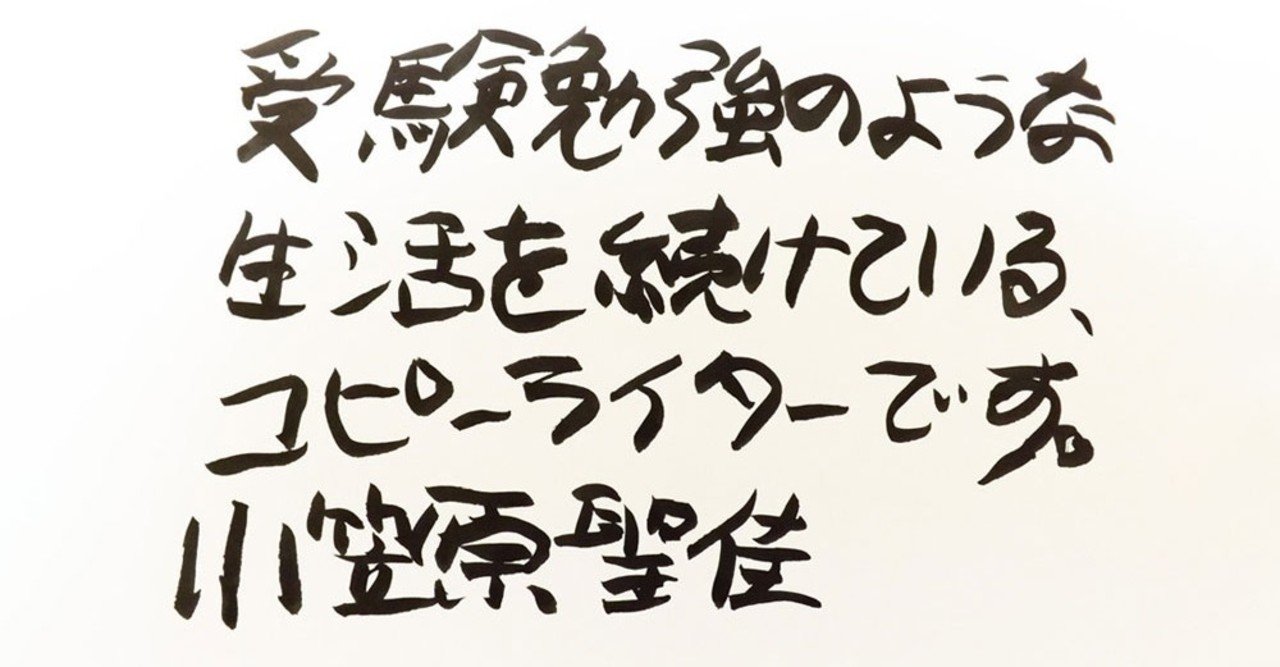 受験勉強のような
生活を続けている、
コピーライターです。
小笠原聖佳